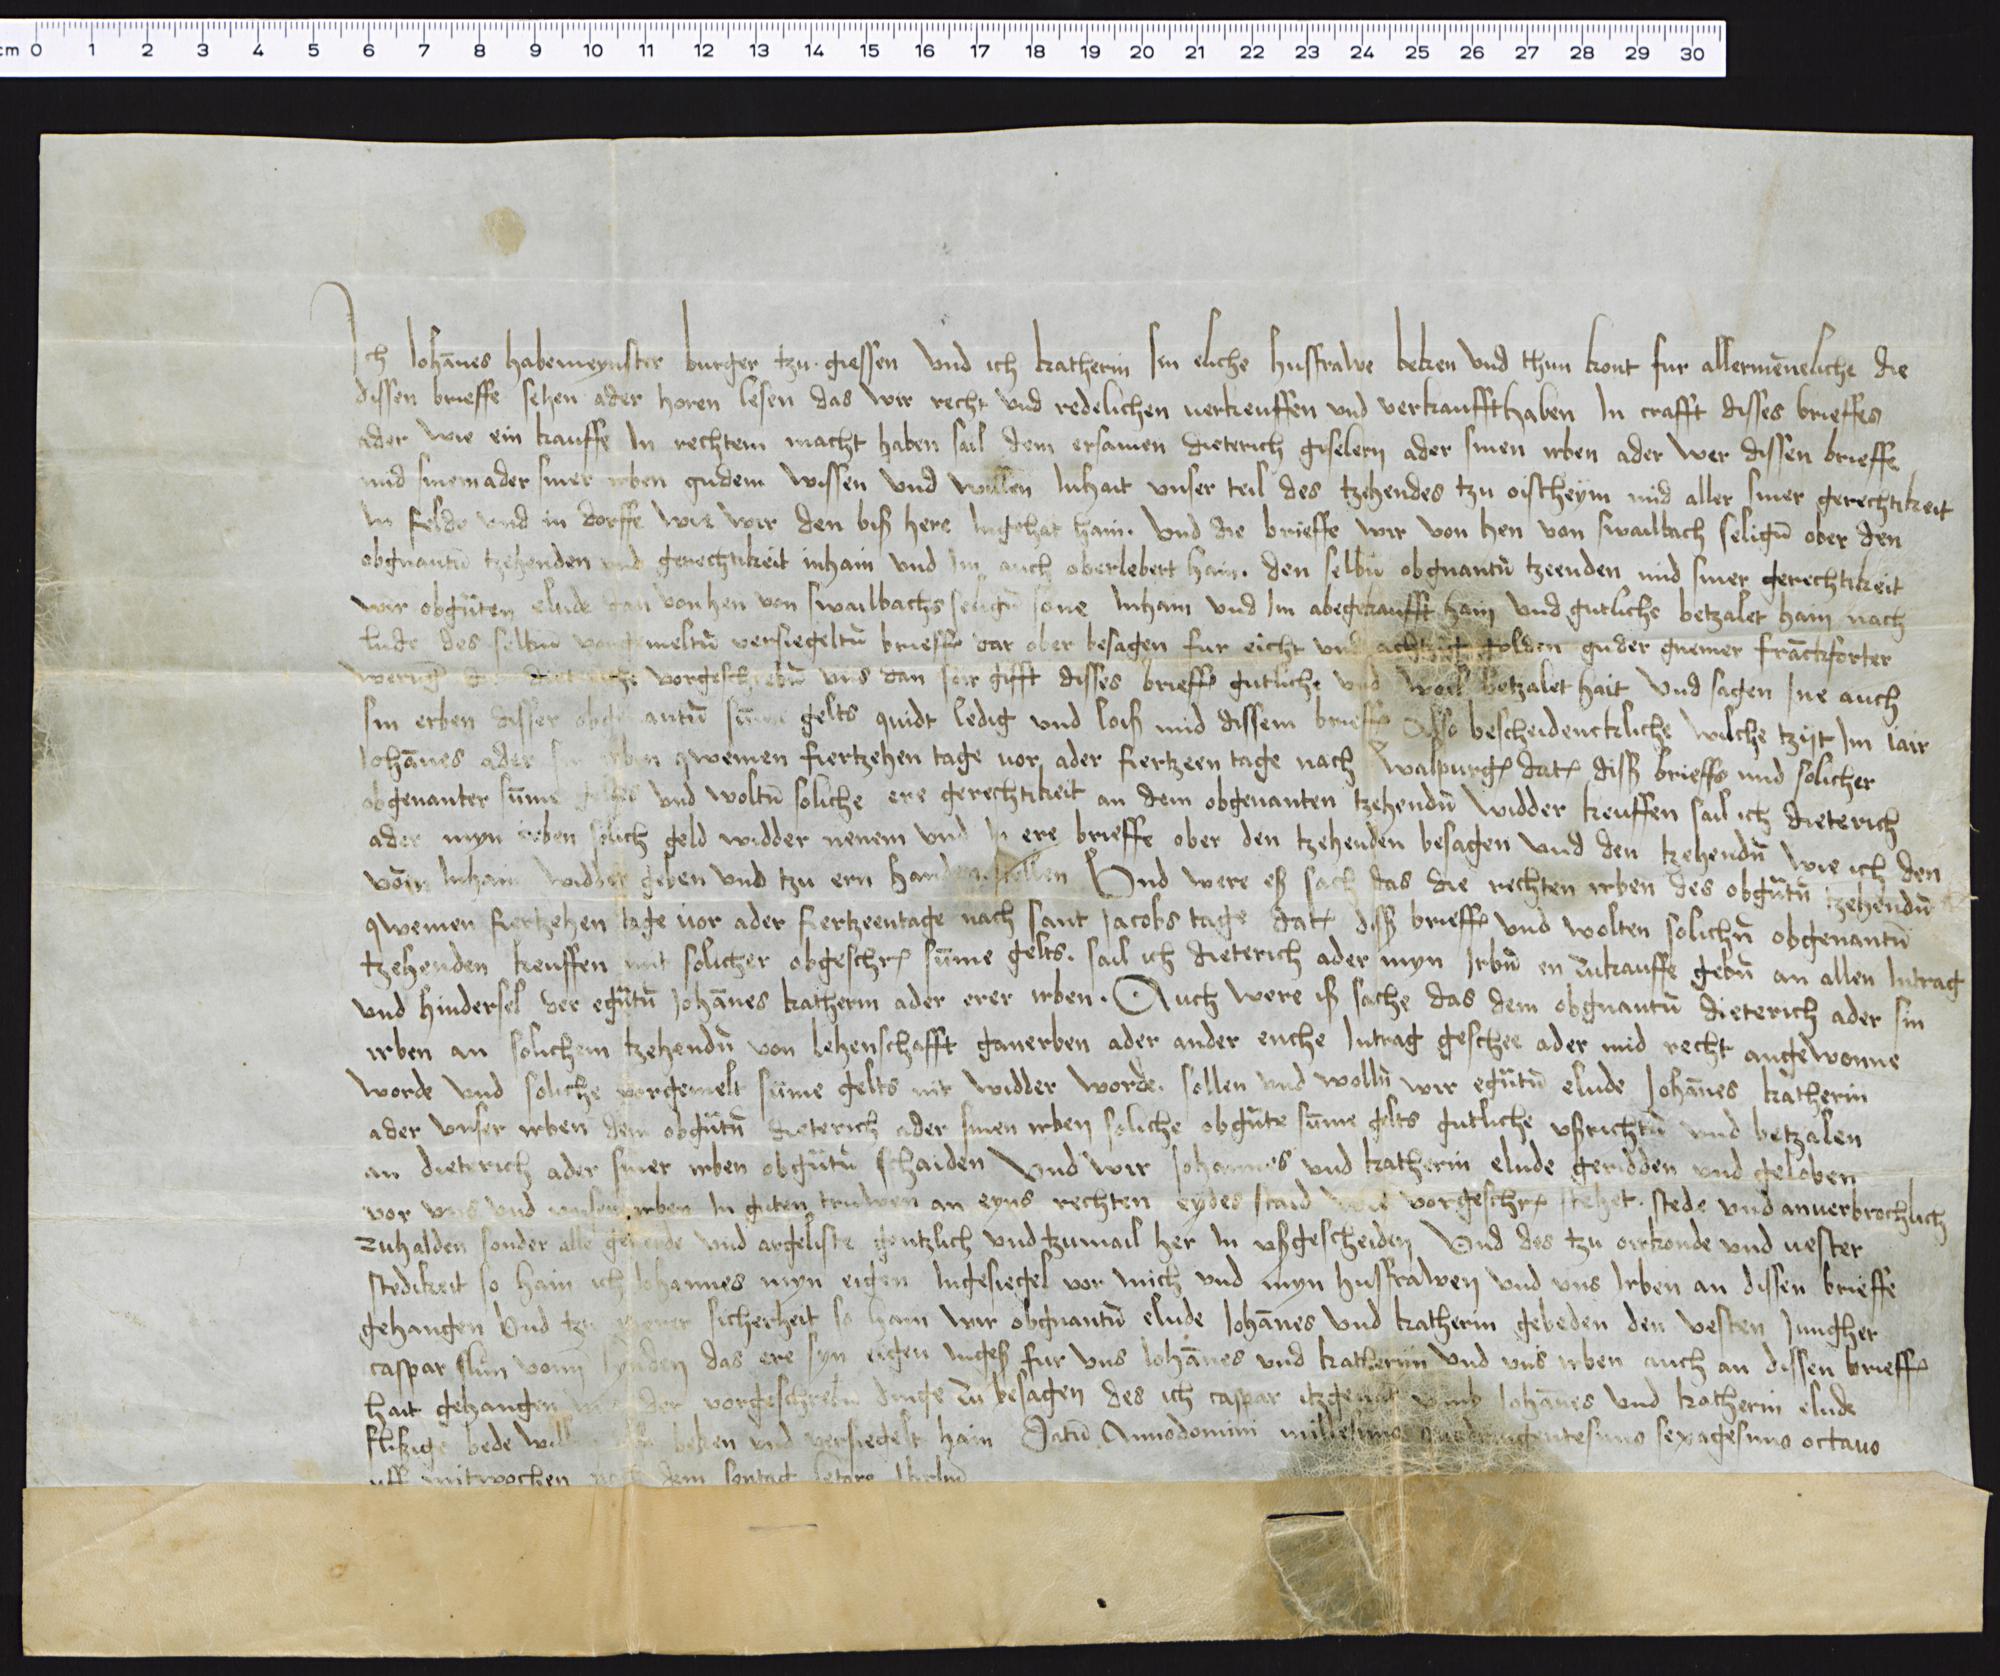 cm 0 1 2 3 4 5 6 7 8 9 10 11 12 13 14 15 16 17 18 19 20 21 22 23 24 25 26 27 28 29 30
Ich Johānes habemeynster burger tzu giessen vnd ich katherin sin eliche husfrawe beken vnd thun kont fur allermēneliche die
dissen brieffe sehen ader horen lesen das wir recht vnd redelichen uerkeuffen vnd verkauffthaben In crafft disses brieffes
ader wie ein kauffe In rechtem macht haben sail dem ersamen dieterich giselern ader sinen irben ader wer dissen brieffe
mid sinem ader siner irben gudem wissen vnd willen Inhait vnser teil des tzehendes tzu oistheym mid aller siner gerechtikeit
In felde vnd in dorffe wie wir den biß here Ingehat hain. vnd die brieffe wir von hen von swailbach seligū ober den
obgnantū tzehenden vnd gerechtikeit inhain vnd Im auch oberlebert hain. den selbū obgnantū tzeenden mid siner gerechtikeit
wir obgūten elude dan von hen von swailbachs seligū sone Inhain vnd Im abegekaufft hain vnd gutliche betzalet hain nach
lude des selbū vorgemeltū versiegeltū brieffe dar ober besagen fur eicht vnd achtzig golden guder gnemer frāckforter
werūg vorgeschrebū vns dan sir gifft disses brieffe gutliche vnd woil betzalet hait vnd sagen Ine auch
sin erben disser obgenantū sūme gelts quidt ledig vnd loiß mid dissem brieffe Also bescheidenckliche wilche tzijt Im Jair
Johānes ader sin irben qwemen fiertzehen tage vor ader fiertzeen tage nach walpurg dat diß brieffs mid solicher
obgenanter sūme geltes vnd woltū soliche ere gerechtikeit an dem obgenanten tzehendū widder keuffen sail ich dieterich
ader myn irben solich geld widder nemem vnd In ere brieffe ober den tzehenden besagen vnd den tzehendū wie ich den
von Inhain widder geben vnd tzu ern handen stellen Vnd were eß sach das die rechten irben des obgūtū tzehendū
qwemen fiertzehen tage vor ader fiertzeentage nach sant Jacobs tage dat diß brieffe vnd wolten solichū obgenantū
tzehenden keuffen mit solicher obgeschr sūme gelts. sail ich dieterich ader myn Irbū en zukauffe gebū an allen Intrag
vnd hindersel der egūtū Johānes katherin ader erer irben. Auch were iß sache das dem obgnantū dieterich ader sin
irben an solichem tzehendū von lehenschafft ganerben ader ander euche Intrag geschee ader mid recht angewonne
worde vnd soliche vorgemelt sūme gelts nit widder worde. sollen vnd wollū wir egūtū elude Johānes katherin
ader vnser irben dem obgūtū dieterich ader sinen irben soliche obgūte sūme gelts gutliche vßrichtū vnd betzalen
an dieterich ader siner irben obgūtū schaiden Vnd wir Johannes vnd katherin elude geridden vnd geloben
vor vns vnd vnser irben In guten truwen an eyns rechten eydes staid wie vorgeschr stehet. stede vnd anuerbrochlich
zuhalden sonder alle geuerde vnd argeliste gentzlich vnd tzumail her In vßgescheiden Vnd des tzu orkonde vnd uester
stedikeit so hain ich Johannes myn eigen Ingesiegel vor mich vnd myn husfrawen vnd vns Irben an dissen brieffe
gehangen Vnd tzu sicherheit so hain wir obgnantū elude Johānes vnd katherin gebeden den vesten Jungher
caspar slūn vonn lynden das ere syn eigen ingeß fur vns Johānes vnd katherinn vnd vns irben auch an dissen brieffe
hait gehangen der vorgeschrebū dinge zu besagen des ich caspar itzgenat vmb Johānes vnd katherin elude
flißige bede beken vnd versiegelt hain Datū Annodomini millesimo quadringentesimo sexagesimo octauo
uff mitwochen nach dem sontag letare